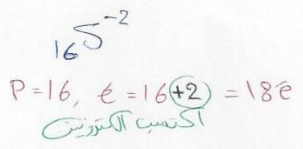 ₁₆S⁻²
P=16, e̅=16+2=18e̅
اكتسب الكترونين